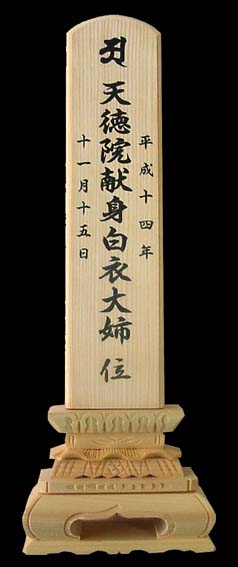 平成十四年
𑖀 天徳院献身白衣大姉 位
十一月十五日